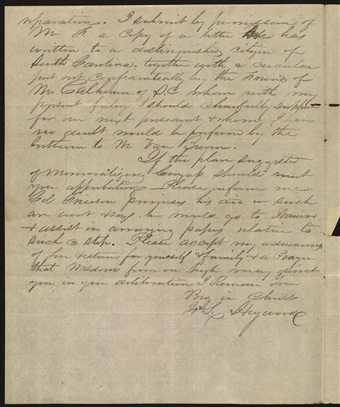 reparation. I submit by permission of
Mr F. a Copy of a letter He has
written to a distinguished citizen of
South Carolina, together with a circular
just out confidentially by the Friends of
Mr Calhoun of S.C. whom with my
present feelings I should cheerfully support
for our next president & whom I have
no doubt would be preferred by the
to Mr Van Buren.
If the plan suggested
of Memorializing Congress should meet
your approbation Please inform me.
Col promises his aid in such
an event & says he would go to
& assist in arranging papers relative to
such a step. Please accept my assurances
of love & esteem for yourself & family & a Prayer
that Wisdom from on high may direct
you in your deliberations I Remain Your
Bro in Christ